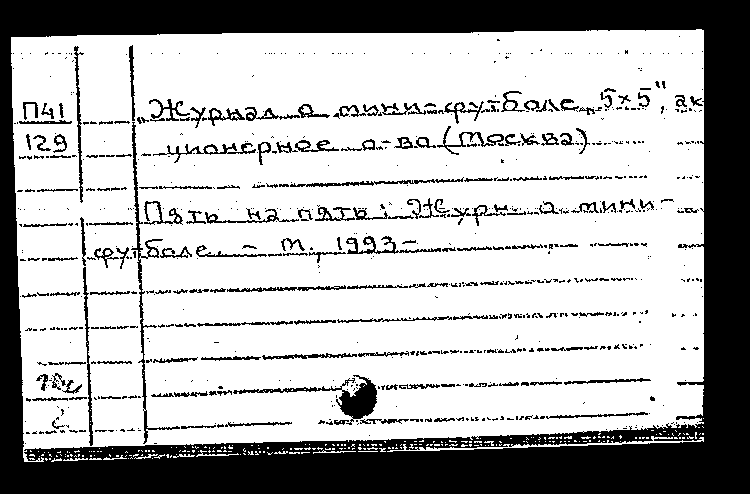 П41
129
„Журнал о мини-футболе „5×5", ак
ционерное о-во (Москва)
Пять на пять: Журн. о мини-
футболе. – М., 1993–